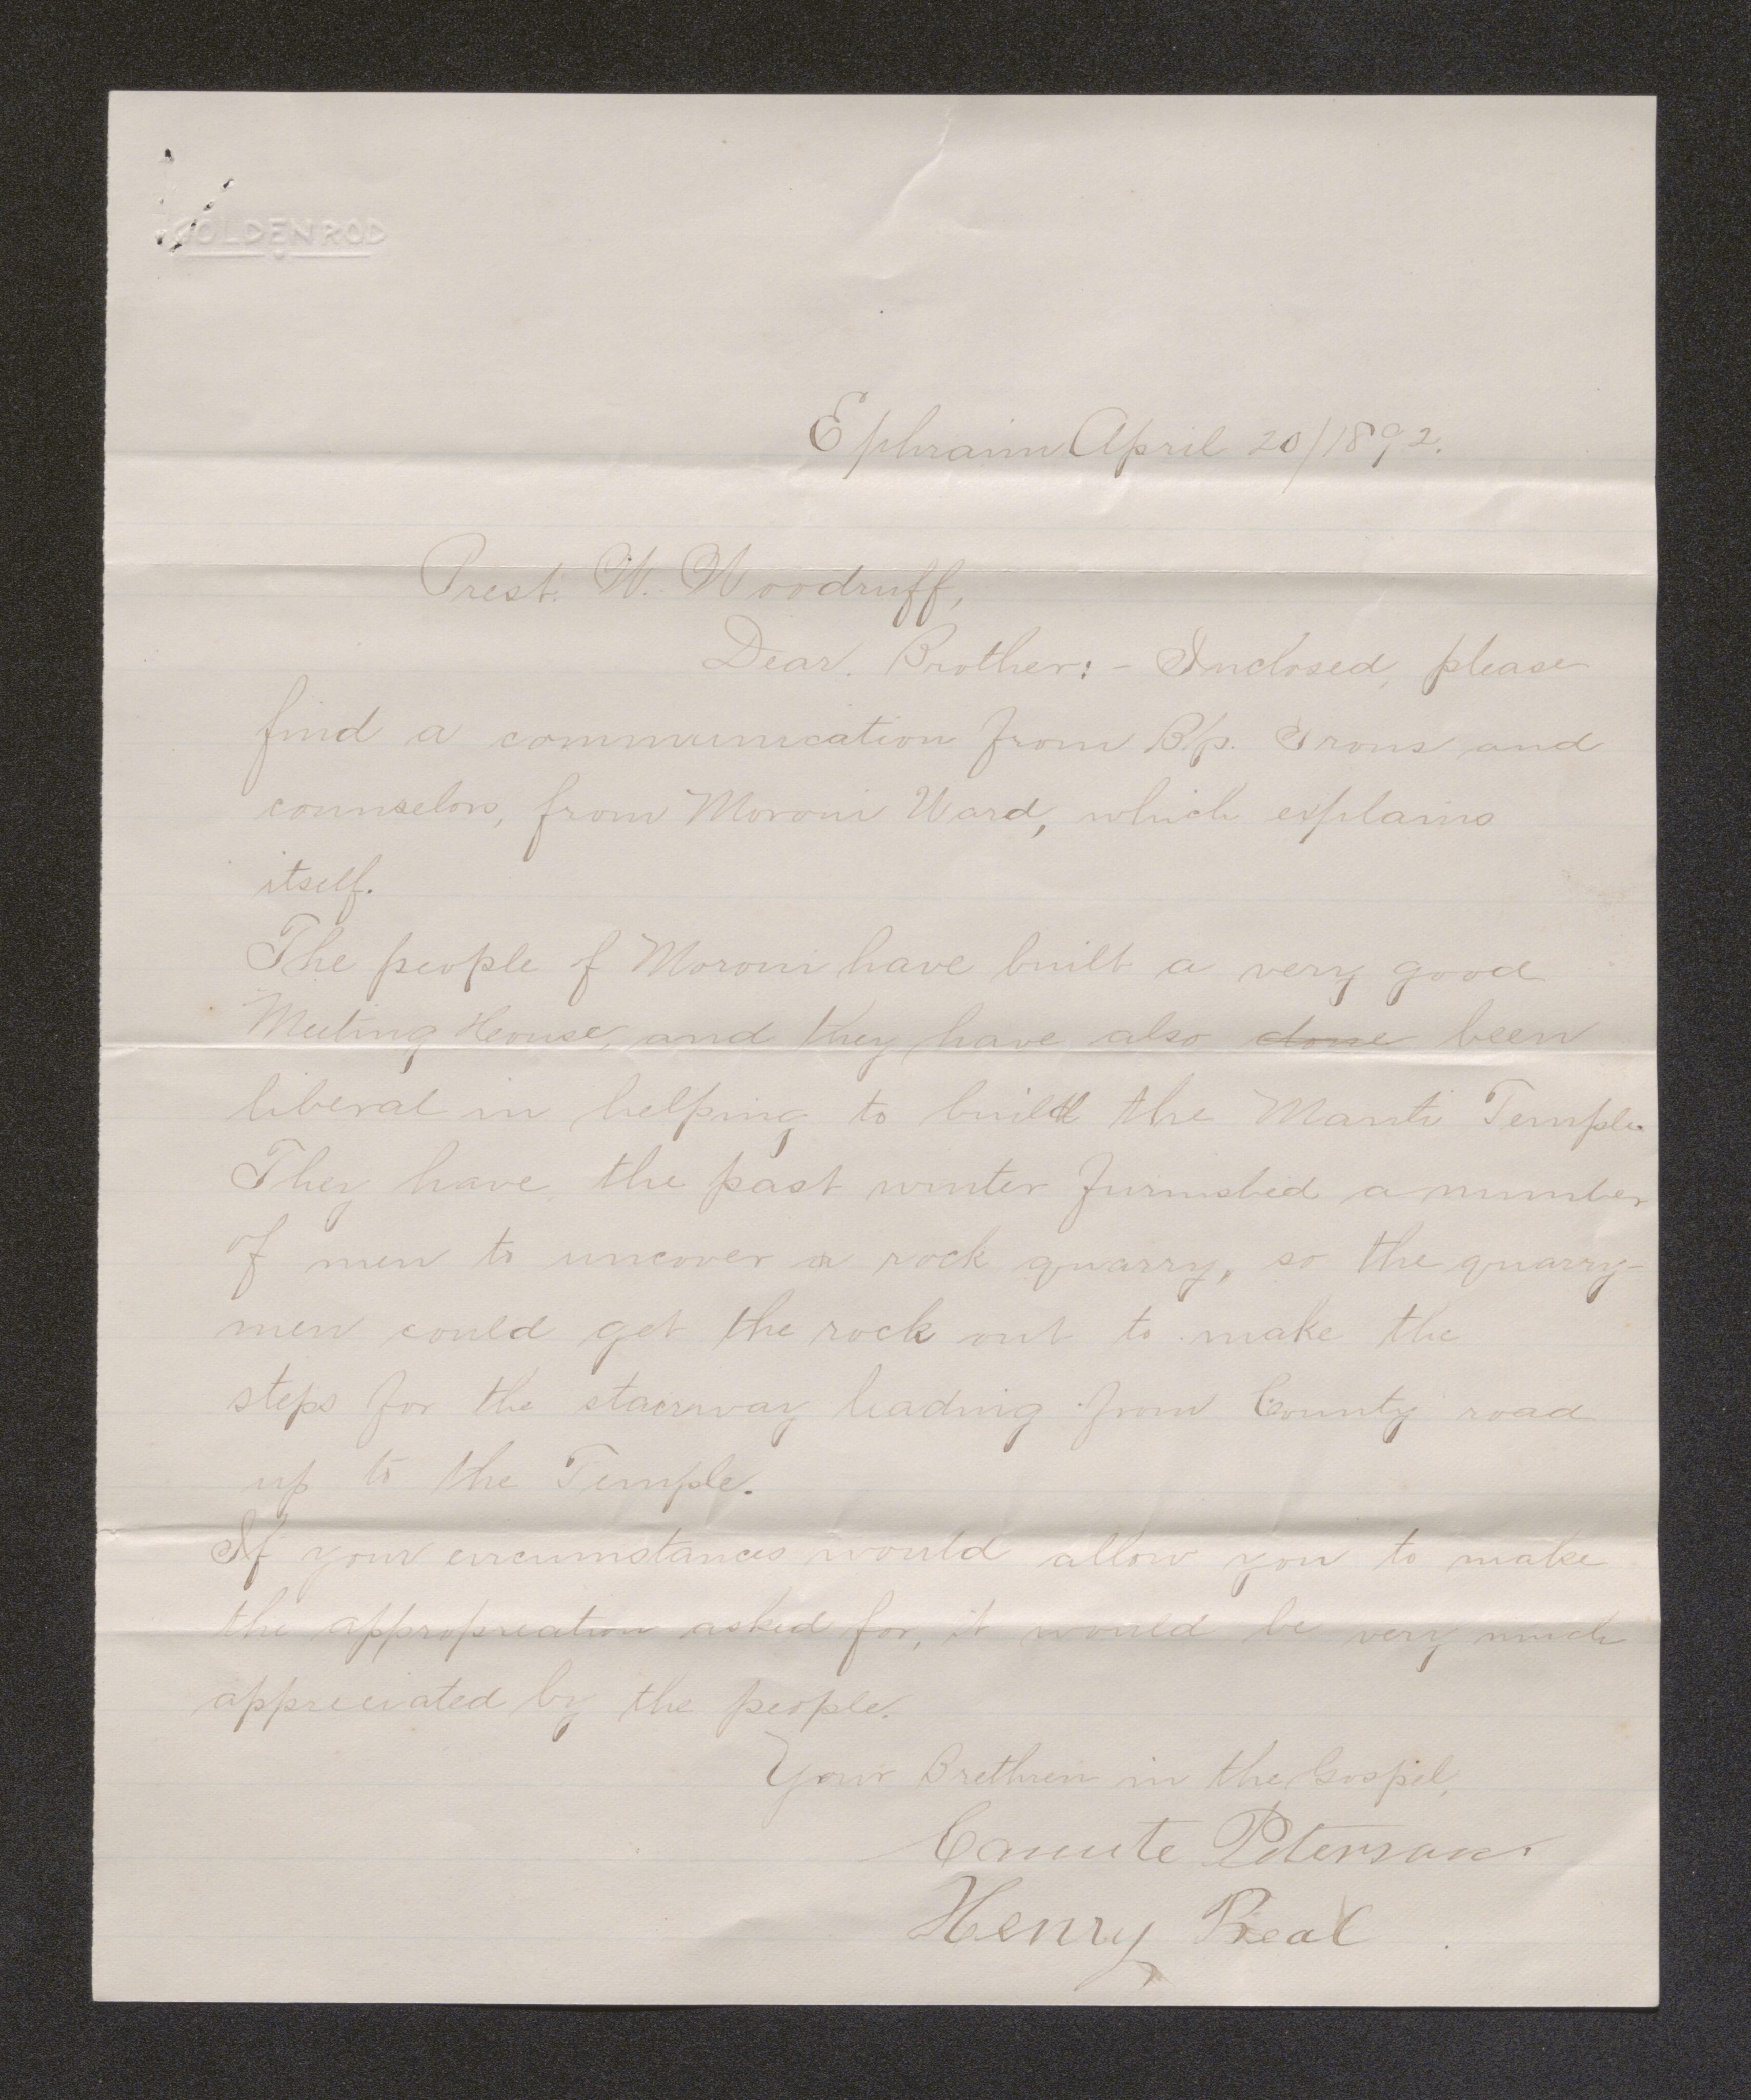 GOLDENROD
Ephraim April 20/1892.
Prest. W. Woodruff,
Dear. Brother: - Inclosed, please
find a communication from B'p. Irons and
counselors, from Moroni Ward, which explains
itself.
The people of Moroni have built a very good
Meeting House, and they have also done been
liberal in helping to build the Manti Temple.
They have the past winter furnished a number
of men to uncover a rock quarry, so the quarry-
men could get the rock out to make the
steps for the stairway leading from County road
up to the Temple.
If your circumstances would allow you to make
the appropreation asked for, it would be very much
appreciated by the people.
Your Brethren in the Gospel,
Canute Peterson.
Henry Beal